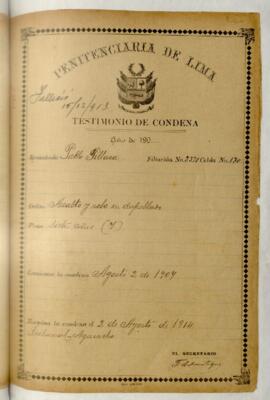 PENITENCIARIA DE LIMA
Falleció 15/12/913
TESTIMONIO DE CONDENA
de 190
Rematado Pablo
Filiación No. Celda No.
Delito Asalto y robo en despoblado
Pena siete años (7)
Comienza la condena Agosto 2 de 1907
Termina la condena el 2 de Agosto de 1914
Tribunal Ayacucho
EL SECRETARIO